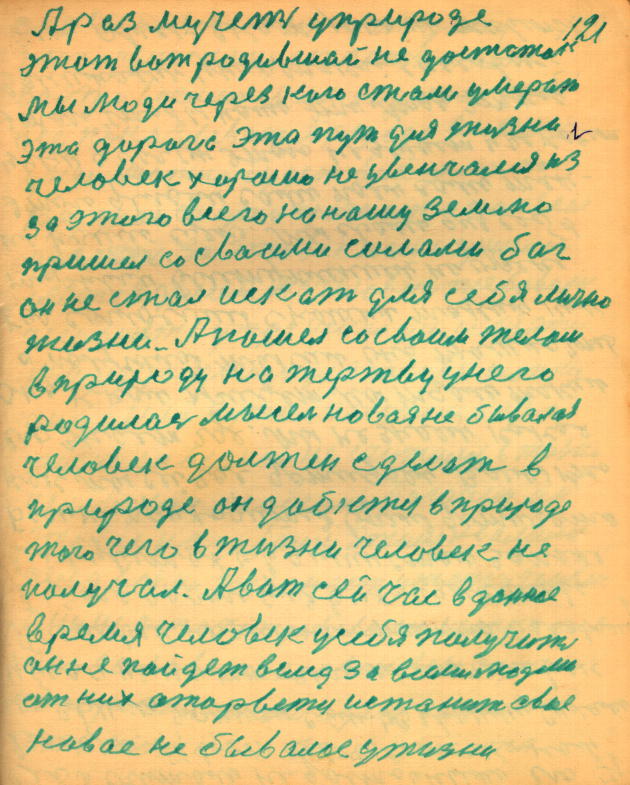 121
А раз мучет у природе
этот вот родившай не достаток
мы люди через кого стали умерат
эта дорога эта пут для жизни
человек хорошо не увенчался из
за этого всего на нашу землю
пришел со своими силами бог
он не стал искат для себя лично
жизни. А пошел со своим телом
в природу на жертву у него
родилас мысел новая не бывалая
человек должен сделат в
природе он добюти в природе
того чего в жизни человек не
получал. А вот сей час в данное
время человек усебя получит
он не пойдет вслед за всеми людми
от них оторвети истанит свое
новае не бывалое у жизни